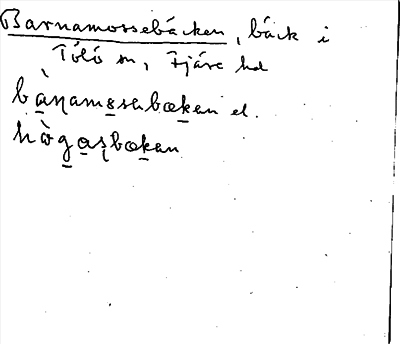 Barnamossebäcken, bäck i
Tölö sn, Fjäre hd
bàṇamosabækan el.
hògaṣbækan